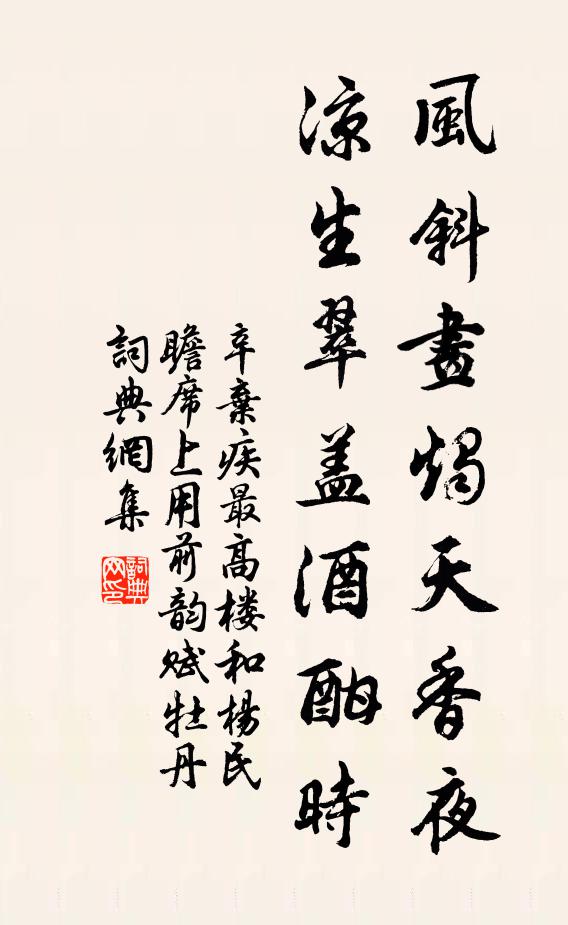 風斜畫燭天香夜
涼生翠盖酒酣時
辛棄疾最高楼和楊民
瞻席上用前韵赋牡丹
詞典網集
詞典
网印